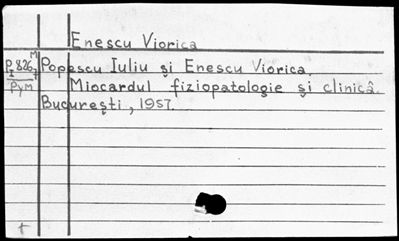 Enescu Viorica
P.826 M
I 7
PyM
Popescu Iuliu și Enescu Viorica.
Miocardul fiziopatologie și clinică.
București, 1957.